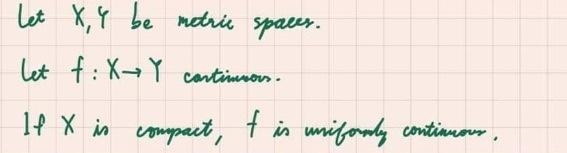 Let X, Y be metric spaces.
Let f : X → Y continuous.
If X is compact, f is uniformly continuous.